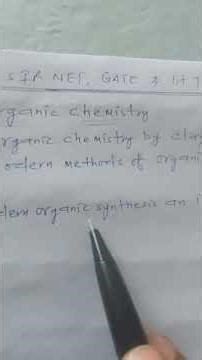 SIR NET, GATE & IIT
rganic chemistry
rganic chemistry by clay
odern methods of organi
dern organic synthesis an i